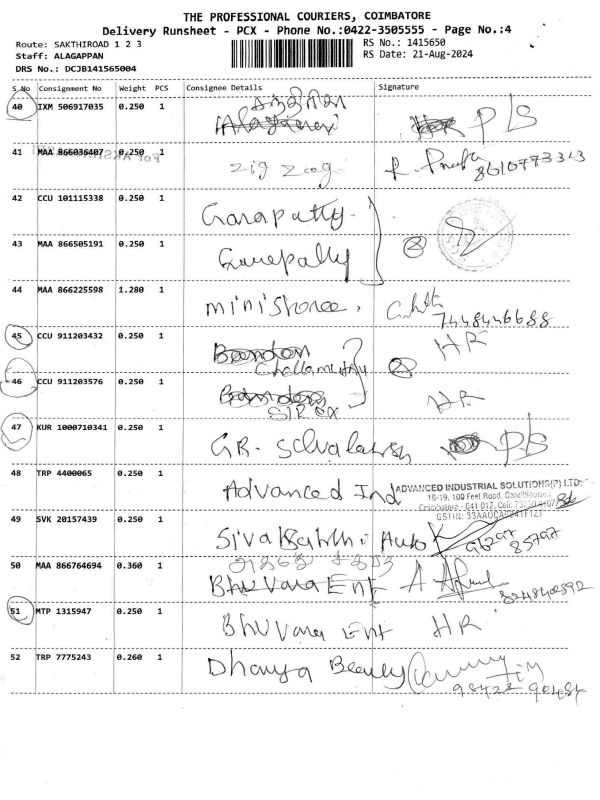 THE PROFESSIONAL COURIERS, COIMBATORE
Delivery Runsheet - PCX - Phone No.:0422-3505555 - Page No.:4
Route: SAKTHIROAD 1 2 3
RS No.: 1415650
Staff: ALAGAPPAN
RS Date: 21-Aug-2024
DRS No.: DCJB141565004
S.No Consignment No Weight PCS Consignee Details Signature
40 IXM 506917035 0.250 1 P/S
41 MAA 866036407 0.250 1 zig zag 8610773313
42 CCU 101115338 0.250 1 Ganapathy
43 MAA 866505191 0.250 1 Ganapathy 2
44 MAA 866225598 1.280 1 ministore. 7448446688
45 CCU 911203432 0.250 1 HR
46 CCU 911203576 0.250 1 HR
47 KUR 1000710341 0.250 1 GR. P/S
48 TRP 4400065 0.250 1 Advanced Ind ADVANCED INDUSTRIAL SOLUTIONS(P) LTD.
18-19, 100 Feet Road,
Coimbatore - 641 012. Cell:
GSTIN:
49 SVK 20157439 0.250 1 Siva Sakthi Auto
50 MAA 866764694 0.360 1 Bhuvana Ent
51 MTP 1315947 0.250 1 Bhuvana Ent HR
52 TRP 7775243 0.260 1 Dhanya Beauty